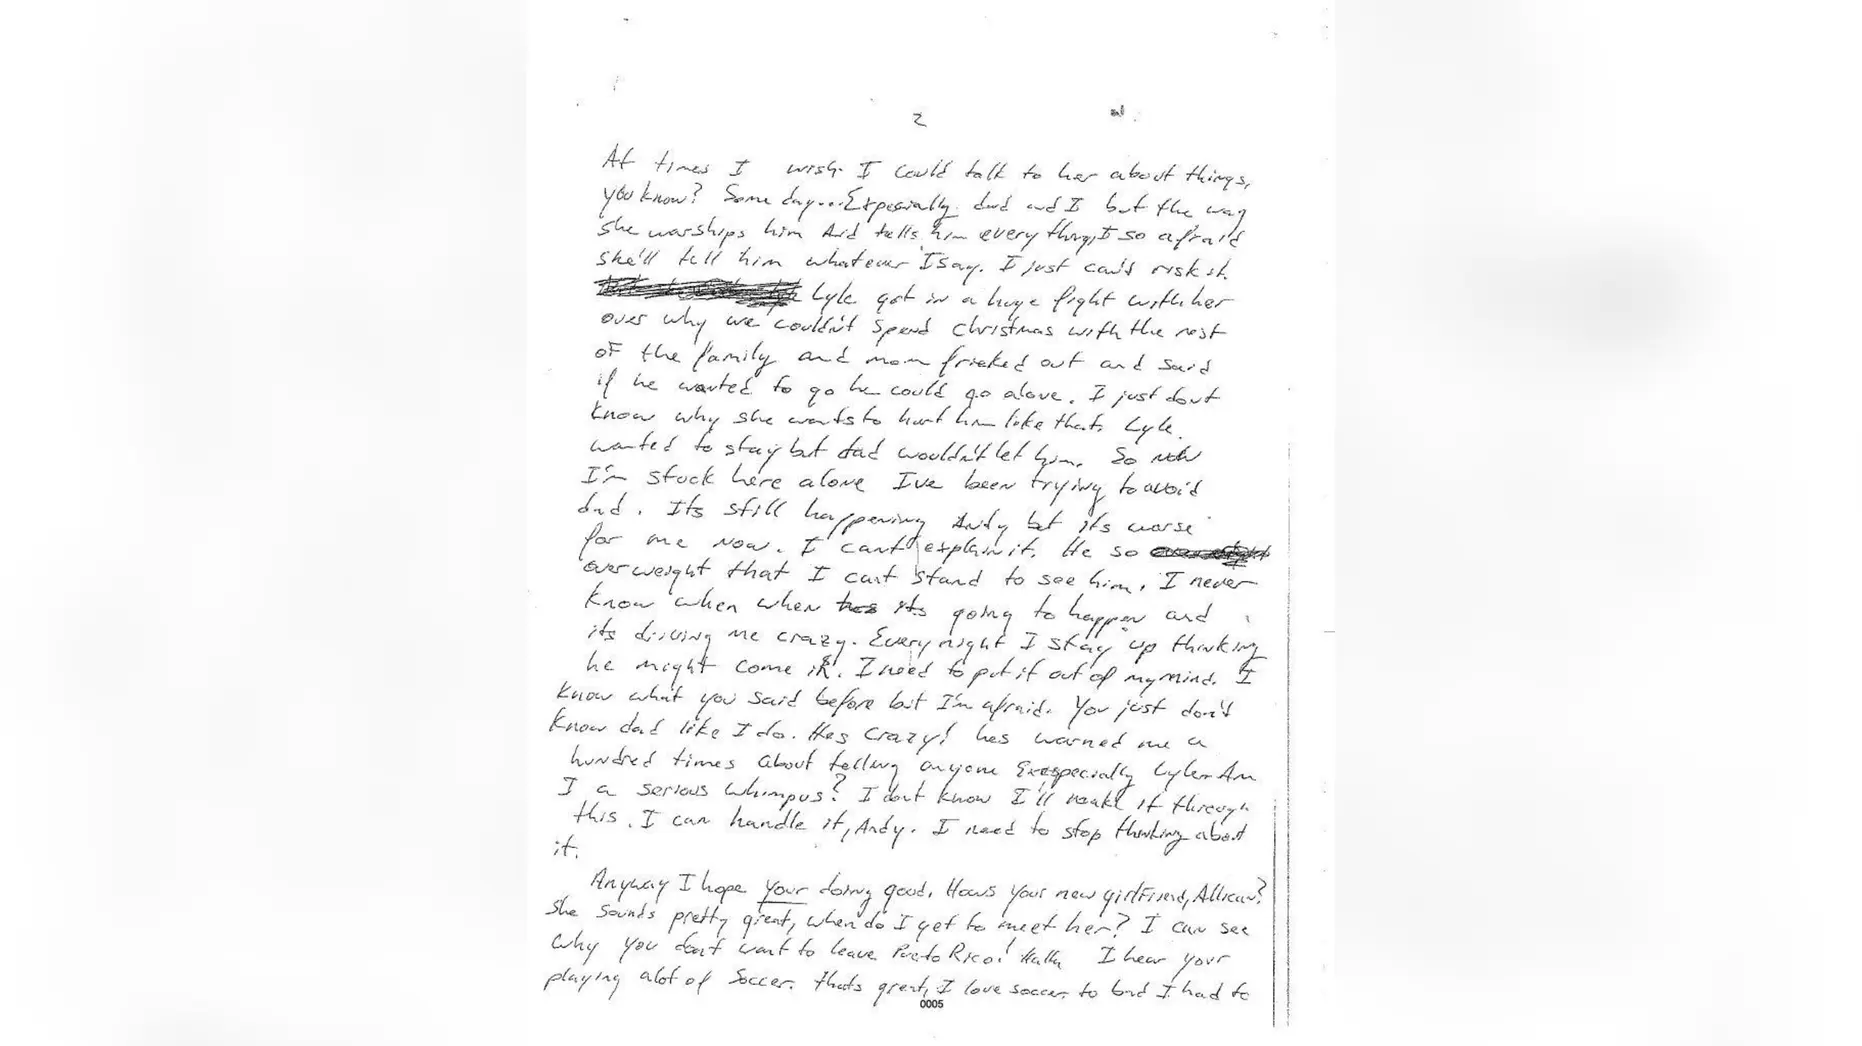 2
At times I wish I could talk to her about things,
you know? Some day... Expecially dad and I but the way
she warships him And tells him every thing, I so afraid
she'll tell him whatever I say. I just can't risk it.
Lyle got in a huge fight with her
over why we couldn't spend christmas with the rest
of the family and mom frieked out and said
if he wanted to go he could go alone. I just dont
know why she wants to hurt him like that. Lyle
wanted to stay but dad wouldn't let him. So now
I'm stuck here alone I've been trying to avoid
dad. Its still happening Andy but its worse
for me now. I cant explain it. He so
overweight that I cant stand to see him. I never
know when when its going to happen and
its driving me crazy. Every night I stay up thinking
he might come in. I need to put it out of my mind. I
know what you said before but I'm afraid. You just don't
know dad like I do. Hes crazy! hes warned me a
hundred times about telling anyone Exespecially Lyle. Am
I a serious whimpus? I dont know I'll make it through
this. I can handle it, Andy. I need to stop thinking about
it.
Anyway I hope your doing good. Hows your new girlfriend,
She sounds pretty great, when do I get to meet her? I can see
why you dont want to leave Puerto Rico! I hear your
playing alot of soccer. thats great, I love soccer to bad I had to
0005